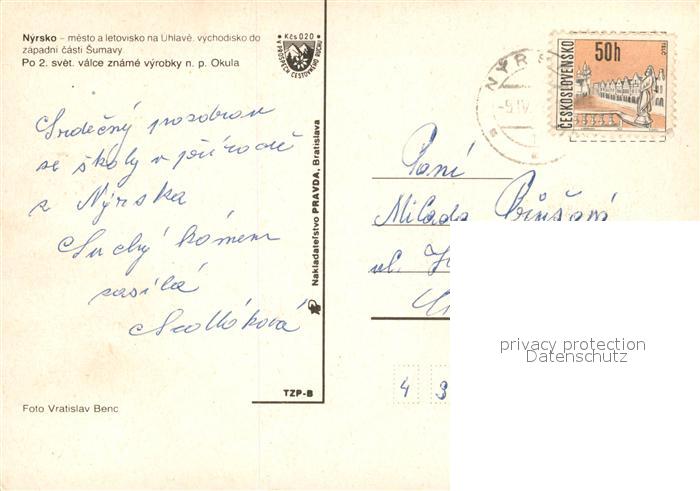 Nýrsko – město a letovisko na Úhlavě, východisko do
západní části Šumavy
Po 2. svět. válce známé výrobky n. p. Okula
Kčs 0,20
V PROSPĚCH CESTOVNÉHO RUCHU
Srdečný pozdrav
ze školy v přírodě
z Nýrska
Suchý kámen
zasílá
Nakladatelstvo PRAVDA, Bratislava
TZP-B
Foto Vratislav Benc
NÝRS
ČESKOSLOVENSKO
50h
TELČ
Paní
Milada
ul.
4 3
privacy protection
Datenschutz